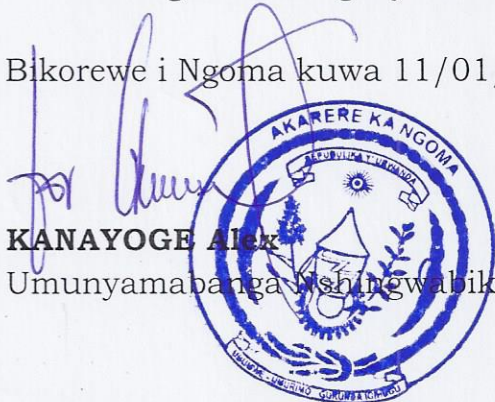 Bikorewe i Ngoma kuwa 11/01
for
KANAYOGE Alex
Umunyamabanga Nshingwabik
AKARERE KA NGOMA
REPUBULIKA Y'URWANDA
UBUMWE - UMURIMO - GUKUNDA IGIHUGU